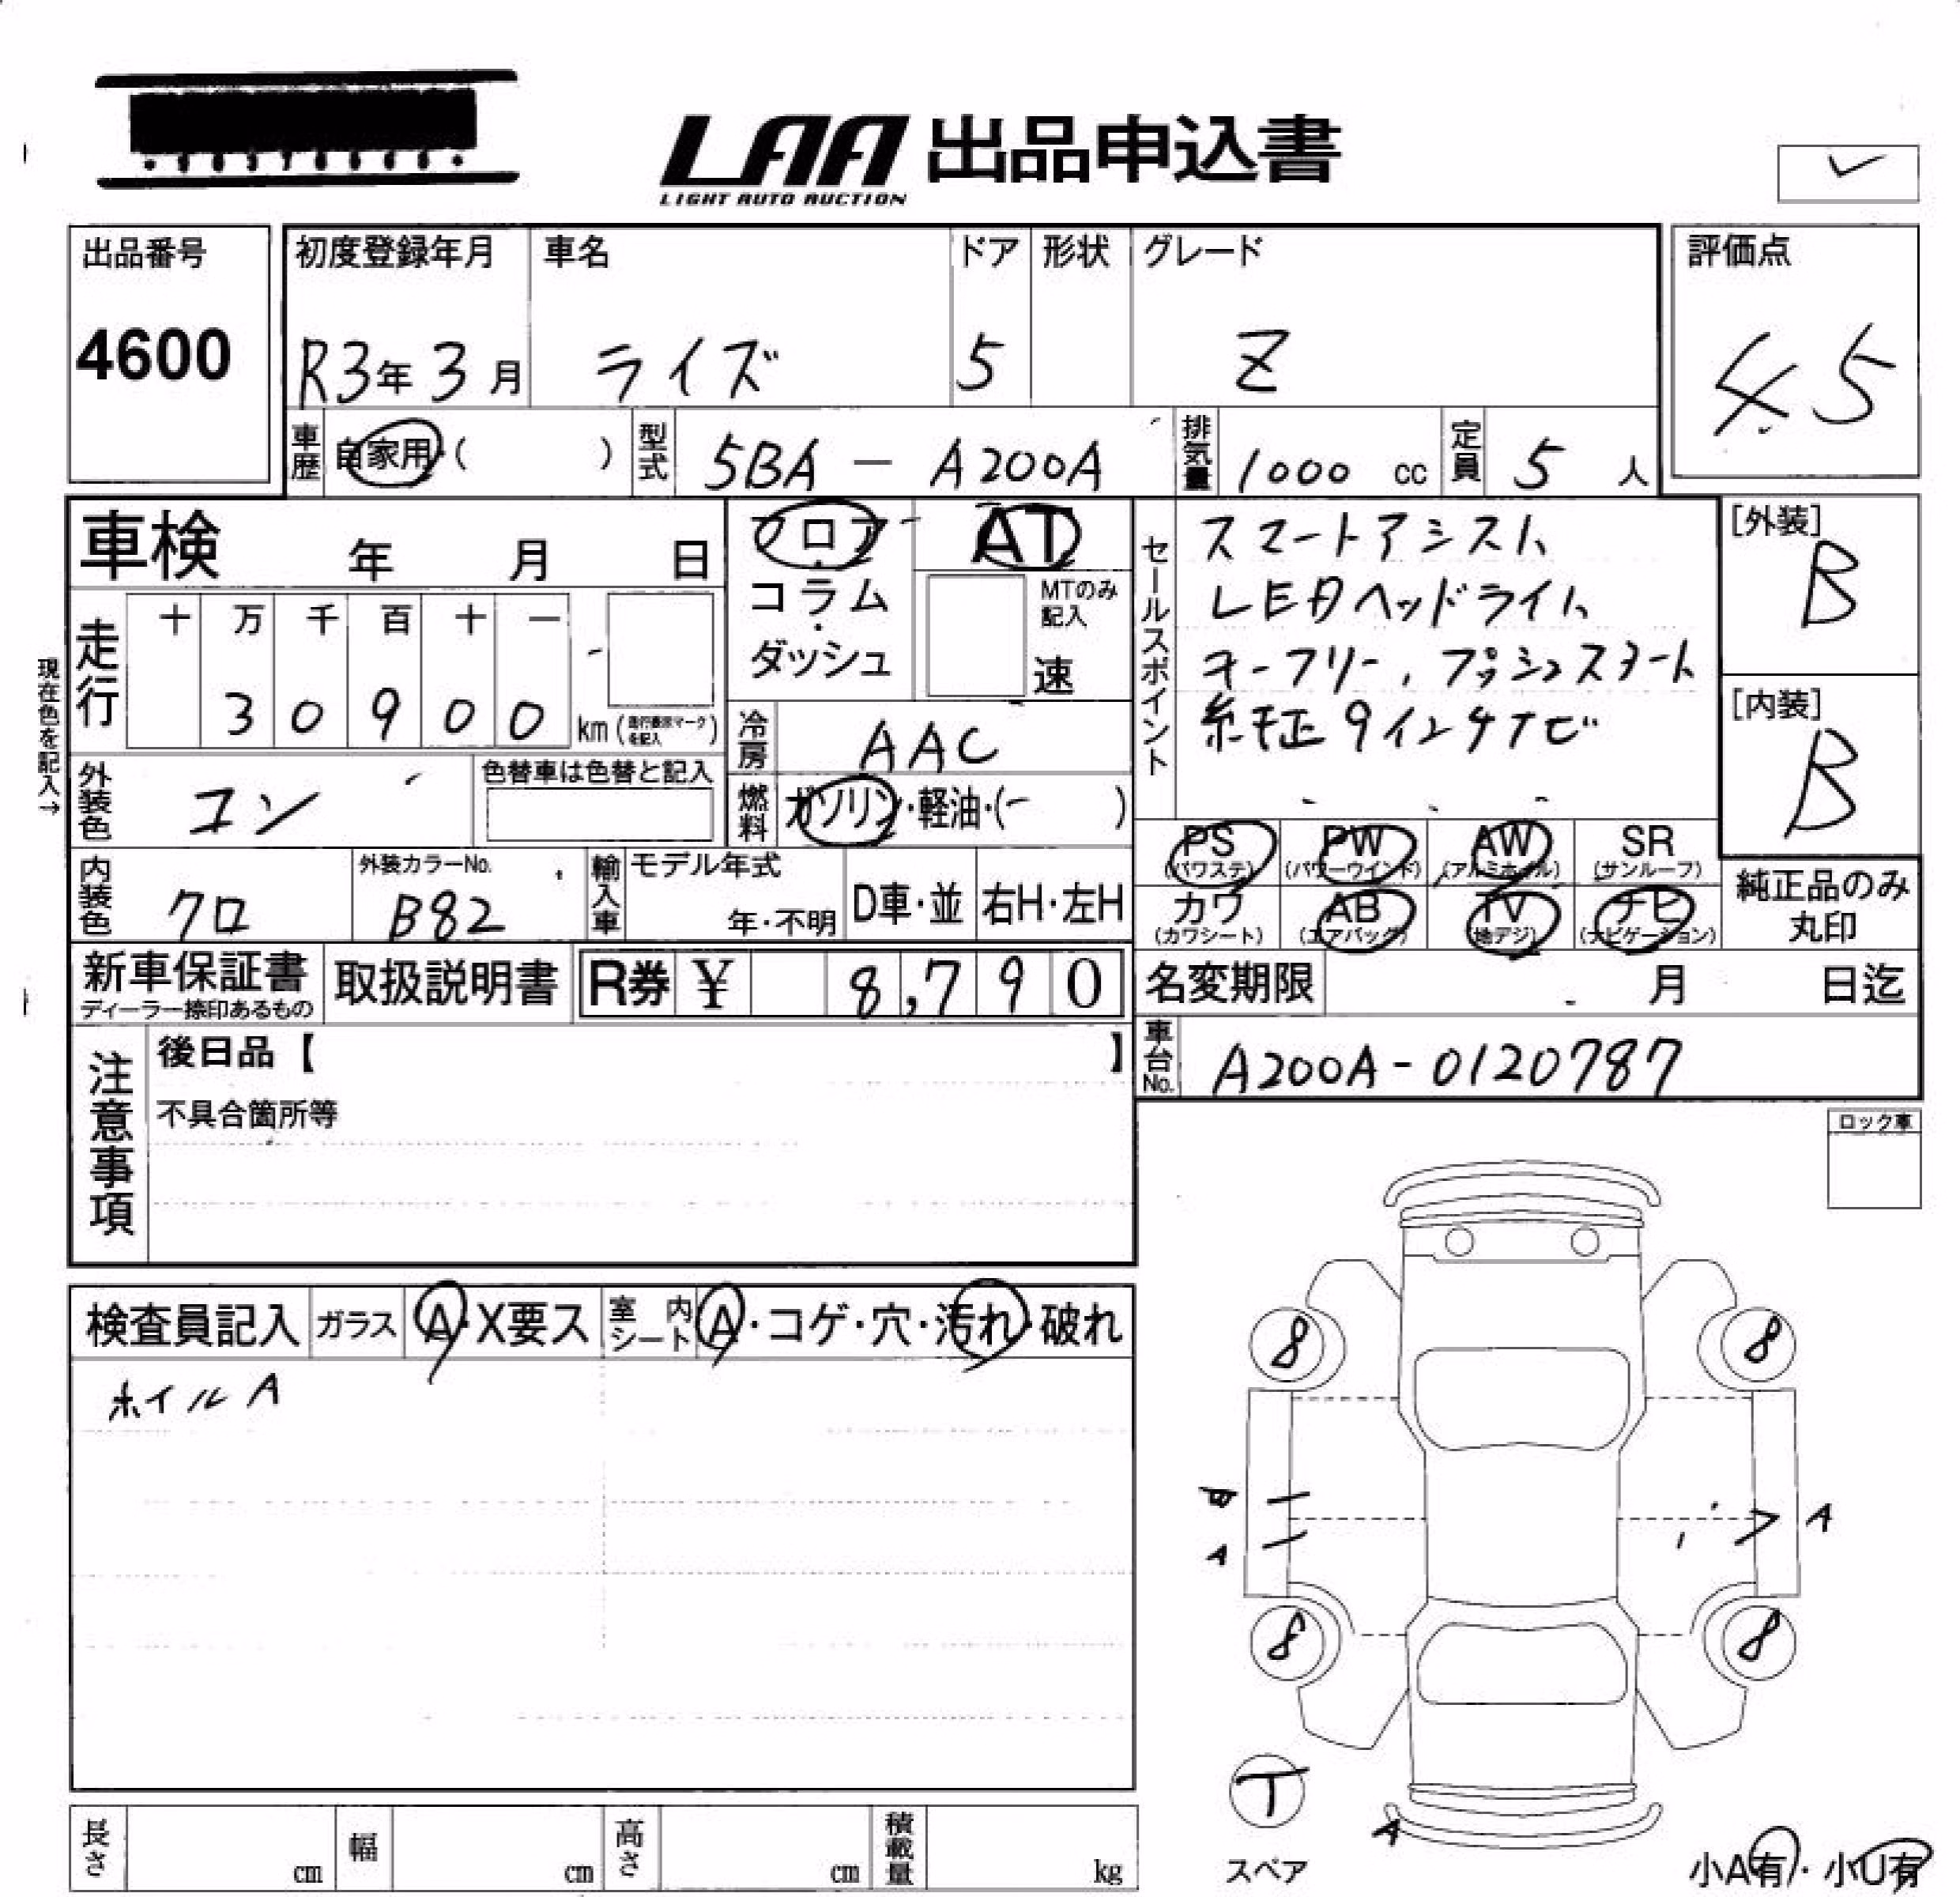 LAA 出品申込書
LIGHT AUTO AUCTION
出品番号
4600
初度登録年月
R3年 3月
車名
ライズ
ドア
5
形状
グレード
Z
評価点
4.5
車歴
自家用・( )
型式
5BA - A200A
排気量
1000 cc
定員
5 人
車検 年 月 日
フロア・
コラム・
ダッシュ
AT
MTのみ記入
速
走行
十 万 千 百 十 一
3 0 9 0 0 km (走行表示マークを記入)
現在色を記入→
外装色
コン
色替車は色替と記入
冷房
AAC
燃料
ガソリン・軽油・( )
セールスポイント
スマートアシスト、
LEDヘッドライト、
キーフリー、プッシュスタート
純正9インチナビ
[外装]
B
[内装]
B
PS
(パワステ)
PW
(パワーウインド)
AW
(アルミホイル)
SR
(サンルーフ)
カワ
(カワシート)
AB
(エアバッグ)
TV
(地デジ)
ナビ
(ナビゲーション)
純正品のみ
丸印
内装色
クロ
外装カラーNo.
B82
輸入車
モデル年式
年・不明
D車・並
右H・左H
新車保証書
ディーラー捺印あるもの
取扱説明書
R券 ¥ 8,790
名変期限 月 日迄
車台No.
A200A-0120787
注意事項
後日品【 】
不具合箇所等
ロック車
検査員記入
ガラス
A・X要ス
室内シート
A・コゲ・穴・汚れ・破れ
ホイルA
8
8
A
A
8
8
T
スペア
A
小A有・小U有
長さ cm
幅 cm
高さ cm
積載量 kg